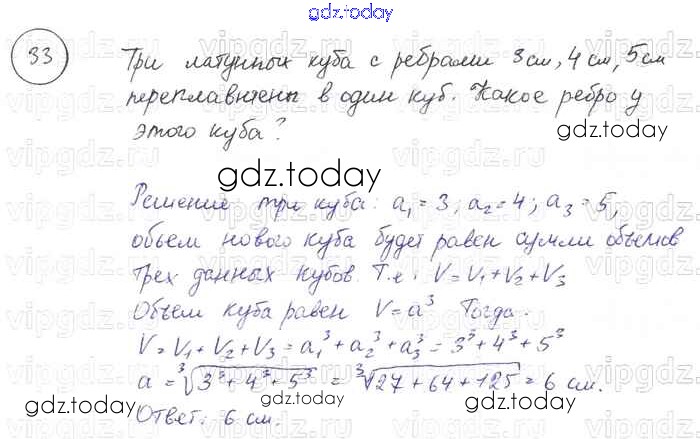 gdz.today
33
Три латунных куба с ребрами 3 см, 4 см, 5 см
переплавлены в один куб. Какое ребро у
этого куба?
gdz.today
gdz.today
Решение три куба: a₁=3; a₂=4; a₃=5,
объем нового куба будет равен сумми объемов
трех данных кубов. Т.е. V=V₁+V₂+V₃
Объем куба равен V=a³ Тогда.
V=V₁+V₂+V₃=a₁³+a₂³+a₃³=3³+4³+5³
a=³√3³+4³+5³ = ³√27+64+125=6 см.
Ответ: 6 см.
gdz.today
gdz.today